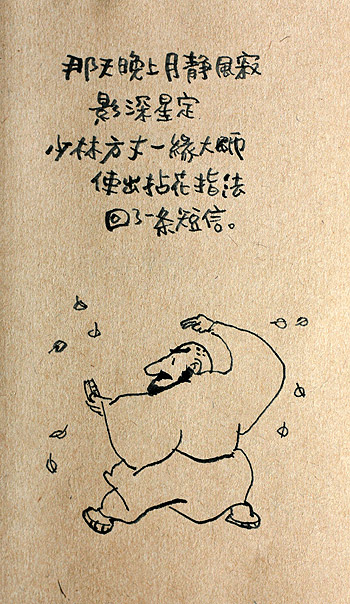 那天晚上月静風寂
影深星定
少林方丈一緣大師
使出拈花指法
回了一条短信。